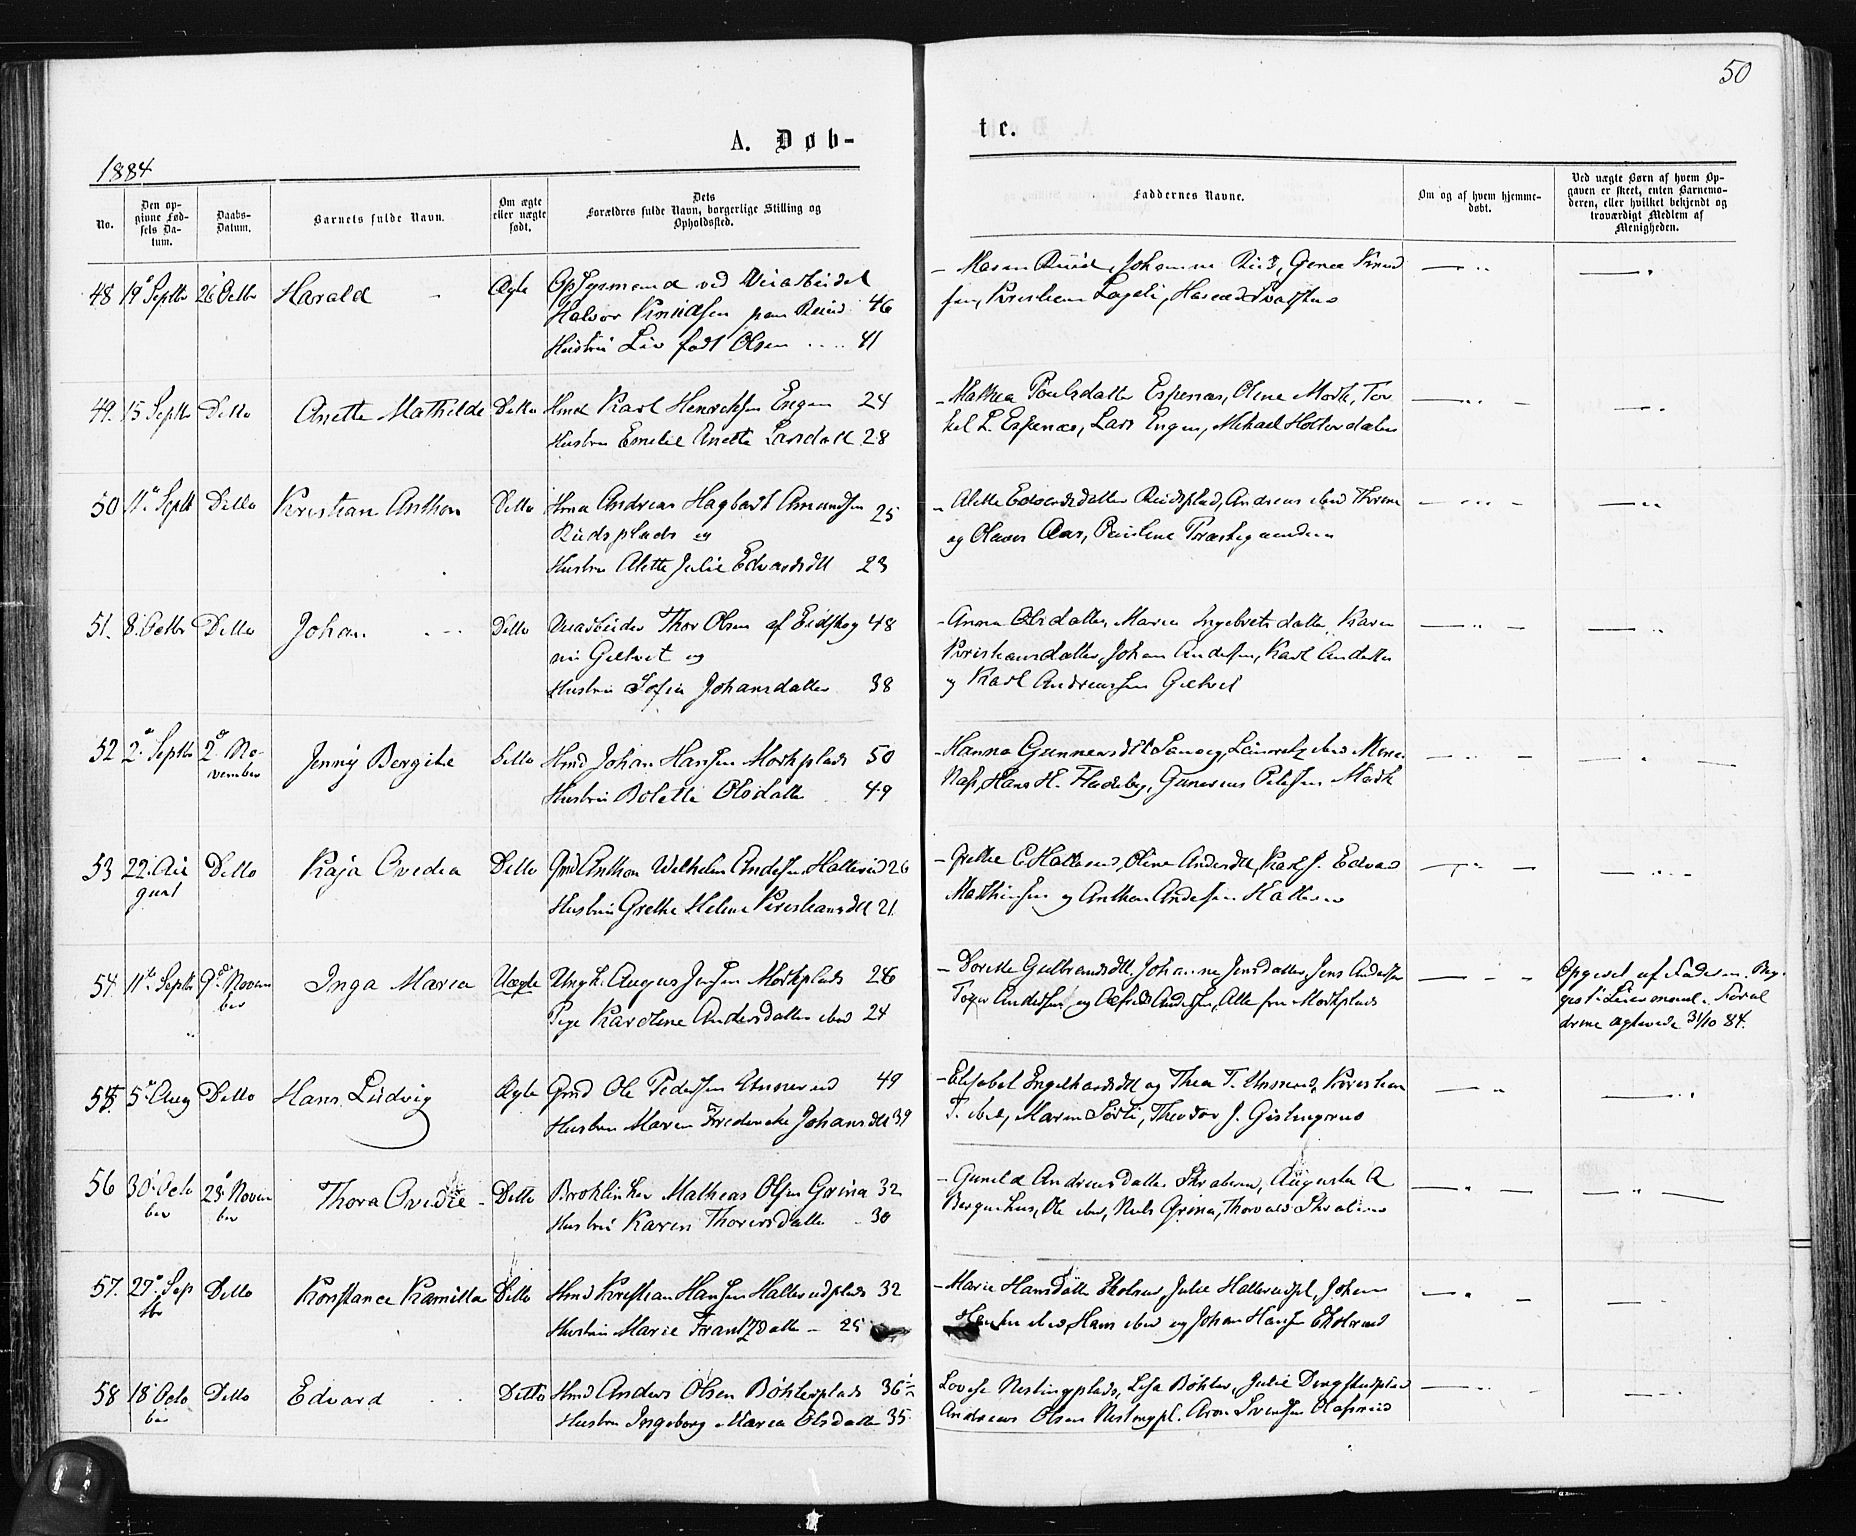 50
A. Døb-
te.
1884
No.
Den op-
givne Fød-
sels Da-
tum.
Daabs-
Datum.
Barnets fulde Navn.
Om ægte
eller uægte
født.
Dets
Forældres fulde Navn, borgerlige Stilling og
Opholdssted.
Faddernes Navne.
Om og af hvem hjemme-
døbt.
Ved uægte Børn af hvem Op-
gaven er skeet, enten Barnemo-
deren, eller hvilket bekjendt og
troværdigt Medlem af
Menigheden.
48 19 Septbr 26 Octbr Harald Ægte Opsysmand ved Veiarbeidet
Halvor Knudsen paa Ruud 46
Hustru Liv født Olsen 41
49. 15 Septbr Ditto Anette Mathilde Ditto Hmd Karl Henriksen Engen 24
Hustru Emelie Anette Larsdatt 28
Mathea Poulsdatter Espenæs, Olene Mork, Tor
kel L. Espenæs, Lars Engen, Mikael Holterdalen
50 11 Septb Ditto Kristian Anthon Ditto Hmd Andreas Hagbart Amundsen 25
Ruudsplads og
Hustru Alette Julie Edvardsdtt 23
Alette Edvardsdatter Ruudsplads, Andreas ibid
og Olaves Aas,
51. 8. Octbr Ditto Johan Ditto Veiarbeider Thor Olsen af Eidskog 48
nu Gjelvet og
Hustru Sofie Johansdatter 38
Anna Olsdatter, Maren Ingebretsdatter, Karen
Kristiansdatter, Johan Andersen, Karl Andersen
og Karl Andreassen Gjelvet
52 2 Septbr 2 No-
vember Jenny Bergite Ditto Hmd Johan Hansen Morkplads 50
Hustru Bolette Olsdatter 49
Hanna Gunnersdtt
Næs, Hans H. Flesteby, Gunerius Petersen Mork
53 22. Au
gust Ditto Kaja Ovedia Ditto Gmd Anthon Wilhelm Andersen Hallerud 26
Hustru Grethe Helene Kristiansdtt 21
Grethe C Hallerud, Oline Andersdtt, Karl J. Edvard
Mathiesen og Anthon Andersen Hallerud
54. 11 Septbr 9 Novem
ber Inga Maria Uægte Ungk. August Jensen Morkplads 26
Pige Karoline Andersdatter ibid 24
Dorthe Gulbrandsdtt, Johanne Jensdatter, Jens Andersen
Andersen og Alfred Andersen, Alle fra Morkplads
Opgivet af Faderen. Beg-
ges 1' Leiermaal. Foræl
drene ægteviede 31/10 84.
55. 5 Aug Ditto Hans Ludvig Ægte Gmd Ole Pedersen Unnerud 49
Hustru Maren Fredrikke Johansdtt 39
Elisabet Engelhardsdtt og Thea T. Unnerud, Kristian
T. ibid, Maren Sørli, Theodor J. Gislingrud
56 30 Octo
ber 23 Novem
ber Thora Ovedie Ditto Brolinker Mathias Olsen Grina 32
Hustru Karen Thorersdatter 30
Gunild Andreasdatter Skralerud, Augusta A
Berguhus, Ole ibid, Nils Grina, Thorvald
57. 27 Sep
tbr Ditto Konstance Kamilla Ditto Hmd Kristian Hansen Hallerudplads 32
Hustru Marie Frantzdatter 25
Marie Hansdatter Ekolrud, Julie Hallerudpl, Johan
Hansen ibid, Hans ibid og Johan Hansen Ekolrud
58 18 Octo
ber Ditto Edvard Ditto Hmd Anders Olsen Bøhlerplads 36
Hustru Ingeborg Maria Olsdatter 35
Lovise Nestingplads, Lisa Bøhler, Julie
Andreas Olsen Nestingpl. Aron Svendsen Olafsrud